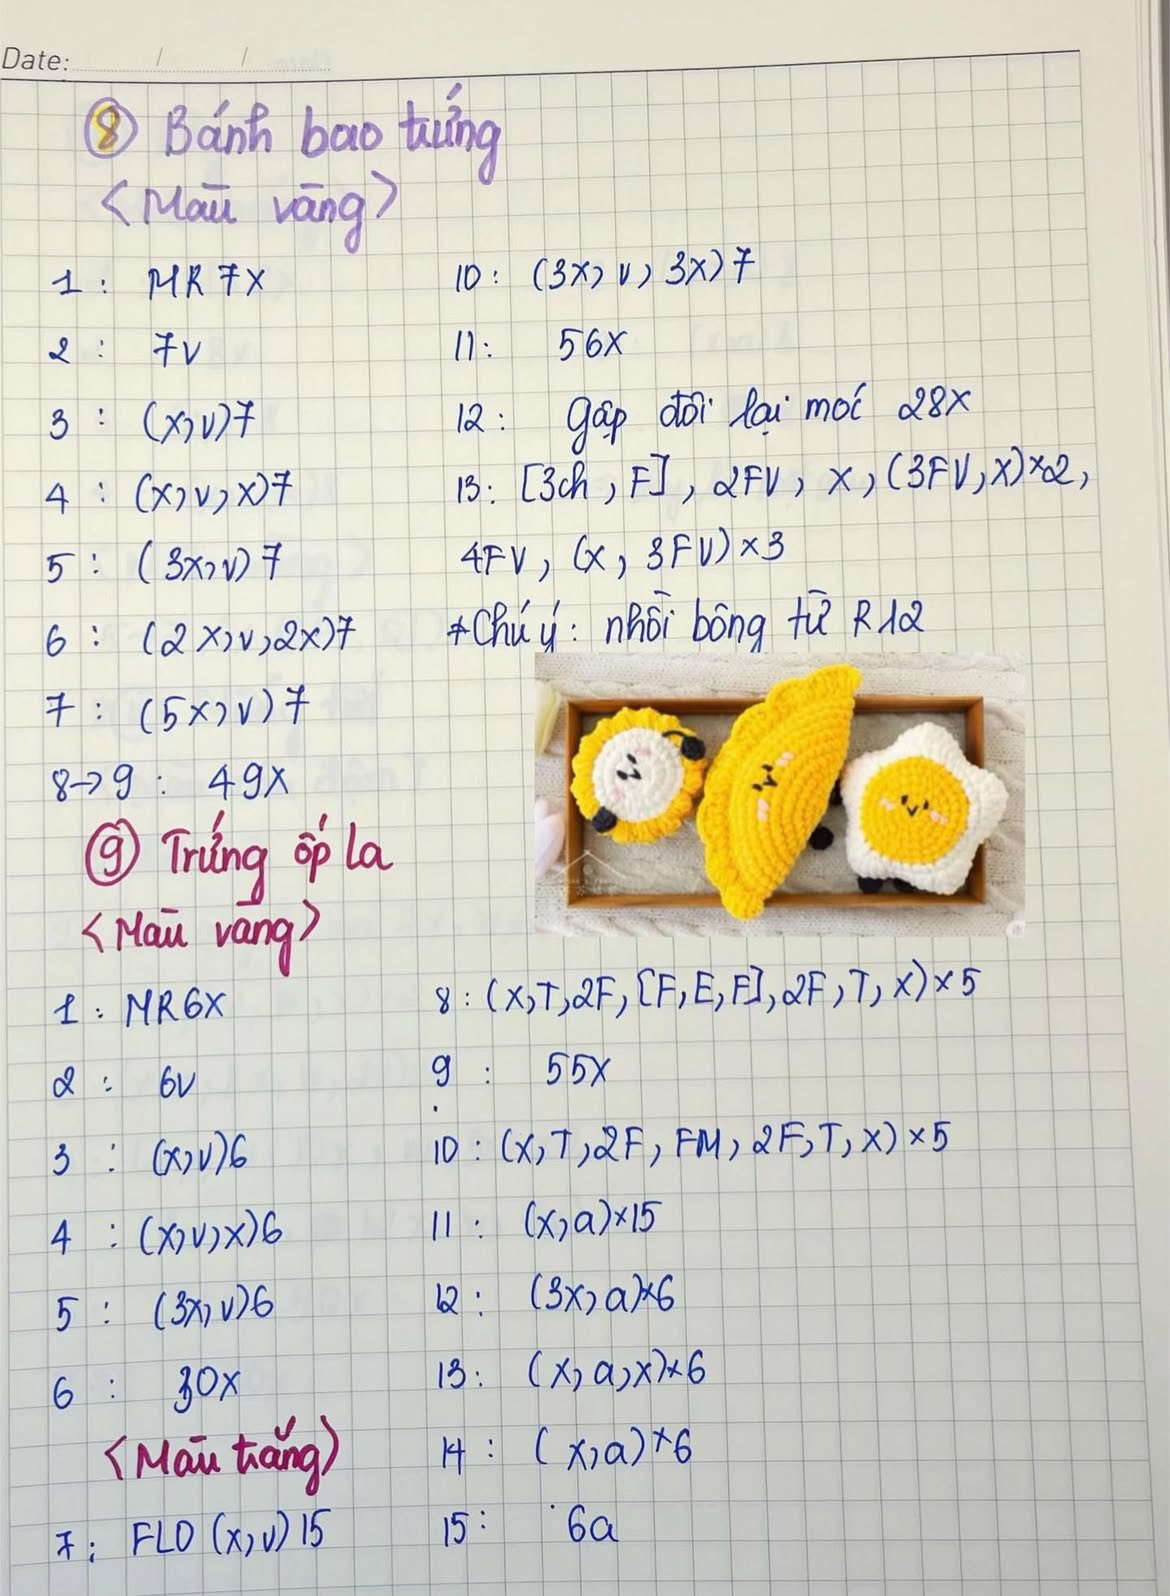 Date: / /
⑧ Bánh bao trứng
<Màu vàng>
1 : MR 7X
2 : 7V
3 : (X,V)7
4 : (X,V,X)7
5 : (3X,V)7
6 : (2X,V,2X)7
7 : (5X,V)7
8→9 : 49X
10 : (3X,V,3X)7
11 : 56X
12 : gấp đôi lại móc 28X
13 : [3ch, F], 2FV, X, (3FV,X)×2,
4FV, (X, 3FV)×3
*Chú ý: nhồi bông từ R12
⑨ Trứng ốp la
<Màu vàng>
1 : MR6X
2 : 6V
3 : (X,V)6
4 : (X,V,X)6
5 : (3X,V)6
6 : 30X
<Màu trắng>
7 : FLO (X,V)15
8 : (X,T,2F,[F,E,F],2F,T,X)×5
9 : 55X
10 : (X,T,2F,FM,2F,T,X)×5
11 : (X,a)×15
12 : (3X,a)×6
13 : (X,a,X)×6
14 : (X,a)×6
15 : 6a